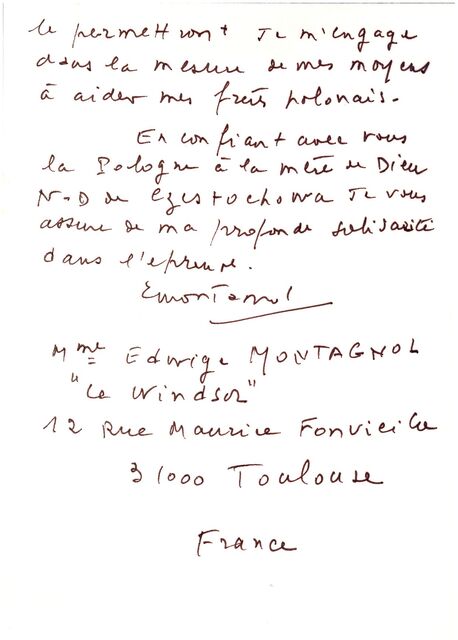 le permettront Je m'engage
dans la mesure de mes moyens
à aider mes frères polonais.
En confiant avec vous
la Pologne à la mère de Dieu
N-D de Czestochowa Je vous
assure de ma profonde solidarité
dans l'épreuve.
EMontagnol
Mme Edwige MONTAGNOL
"Le Windsor"
12 Rue Maurice Fonvieille
31000 Toulouse
France